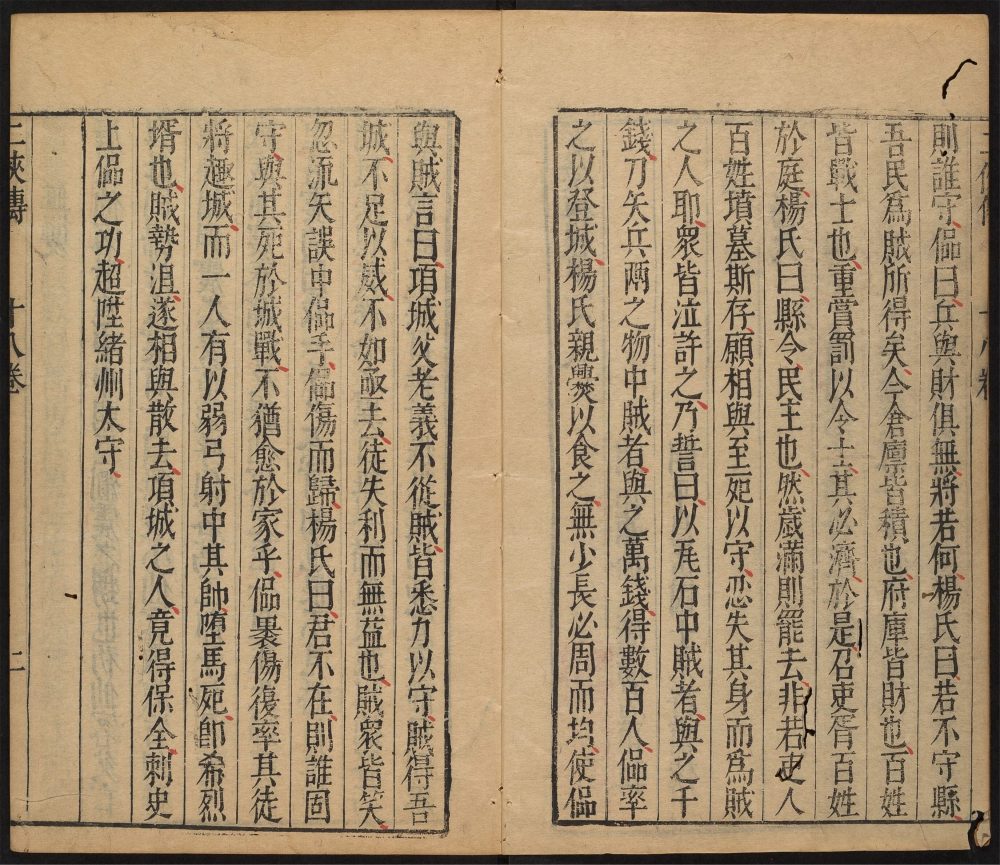 則誰守偪曰兵與財俱無將若何楊氏曰若不守縣
吾民爲賊所得矣今倉廪皆積也府庫皆財也百姓
皆戰士也重賞罰以令士其必濟於是召吏胥百姓
於庭楊氏曰縣令民主也然歲滿則罷去非若吏人
百姓墳墓斯存願相與至死以守忍失其身而爲賊
之人耶眾皆泣許之乃誓曰以瓦石中賊者與之千
錢刀矢兵兩之物中賊者與之萬錢得數百人偪率
之以登城楊氏親爨以食之無少長必周而均使偪
與賊言曰項城父老義不從賊皆悉力以守賊得吾
城不足以威不如亟去徒失利而無益也賊衆皆笑
忽流矢誤中偪手偪傷而歸楊氏曰君不在則誰固
守與其死於城戰不猶愈於家乎偪裹傷復率其徒
將趣城而一人有以弱弓射中其帥墮馬死卽希烈
壻也賊勢沮遂相與散去項城之人竟得保全刺史
上偪之功超陞緒州太守
十八卷 二